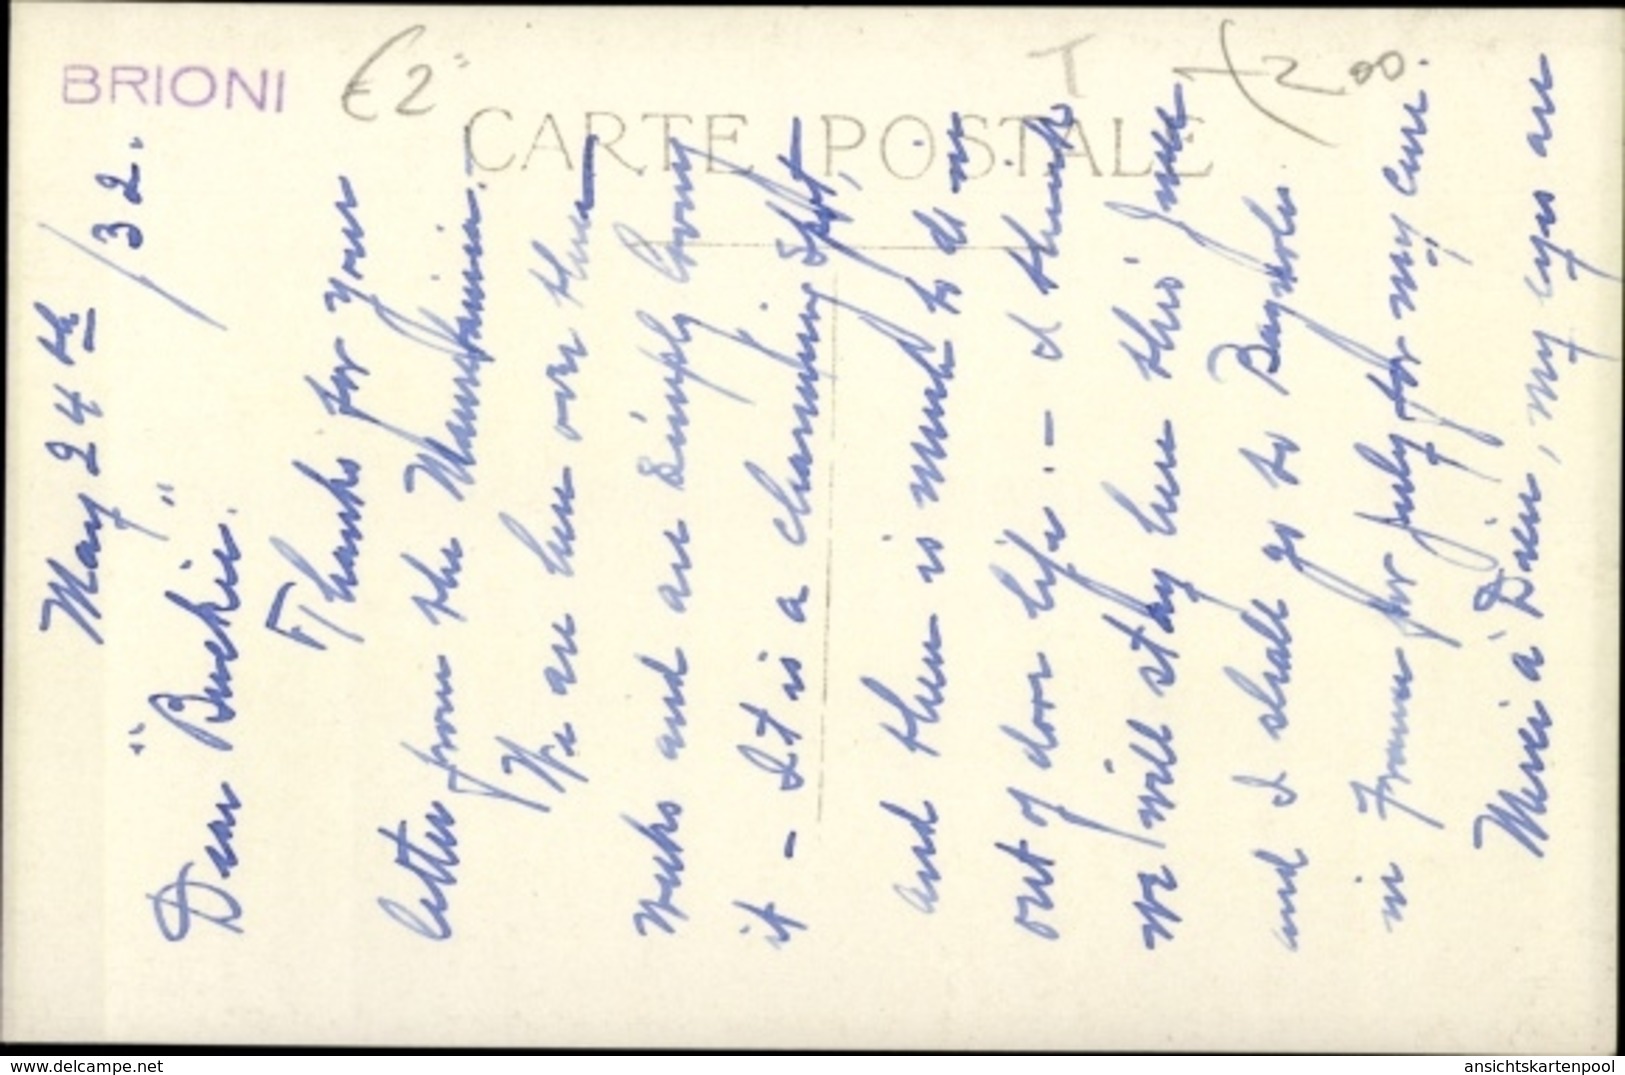 BRIONI
€2
CARTE POSTALE
T
2.00.
May 24th/32.
Dear "Buckie".
Thanks for your
letter from the Mauretania.
We are here over three
weeks and are simply loving
it - It is a charming spot,
and there is much to do in
out of door life. - I think
we will stay here this June
and I shall go to Bagnoles
in France for July for my cure.
Merci à Dieu, my eyes are
www.ansichtskartenpool.de
ansichtskartenpool